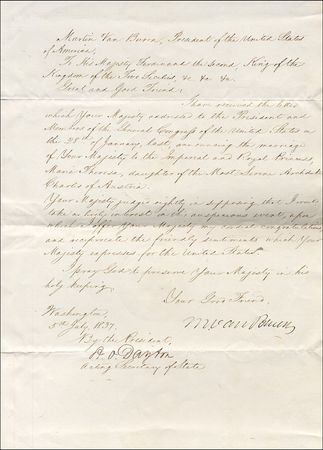 Martin Van Buren, President of the United States
of America,
To His Majesty Ferdinand the Second King of the
Kingdom of the Two Sicilies, &c &c &c.
Great and Good Friend:
I have received the letter
which Your Majesty addressed to the President and
Members of the General Congress of the United States on
the 28th of January, last, announcing the marriage
of Your Majesty to the Imperial and Royal Princess,
Maria Theresa, daughter of the Most Serene Archduke
Charles of Austria.
Your Majesty judges rightly in supposing that I would
take a lively interest in this auspicious event, upon
which I offer Your Majesty my cordial congratulations
and reciprocate the friendly sentiments which Your
Majesty expresses for the United States.
I pray God to preserve Your Majesty in his
holy keeping.
Your Good Friend,
M Van Buren
Washington,
5th July, 1837.
By the President,
A. O. Dayton
Acting Secretary of State